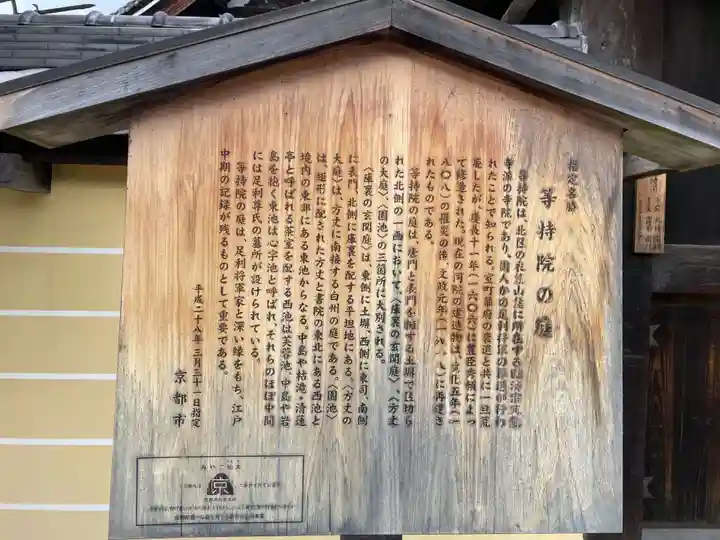 指定名勝
等持院の庭
等持院は、北区の衣笠山麓に所在する臨済宗天龍
寺派の寺院であり、国人かの足利将軍の
れたことで知られる。室町幕府の衰退と共に一旦荒
廃したが、慶長十一年(一六〇六)に豊臣秀頼によっ
て修造された。現在の同院の建造物は、文化五年(一
八〇八)の罹災の後、文政元年(一八一八)に再建さ
れたものである。
等持院の庭は、唐門と表門を
れた北側の一画において、〈庫裏の玄関庭〉、〈方丈
の大庭〉、〈園池〉の三箇所に大別される。
〈庫裏の玄関庭〉は、東側に土塀、西側に東司、南側
に表門、北側に庫裏を配する平坦地にある。〈方丈の
大庭〉は、方丈に南接する白州の庭である。〈園池〉
は、矩形に配された方丈と書院の東北にある西池と
境内の東部にある東池からなる。中島や枯滝・清漣
亭と呼ばれる茶室を配する西池は芙蓉池、中島や岩
島を抱く東池は心字池と呼ばれ、それらのほぼ中間
には足利尊氏の墓所が設けられている。
等持院の庭は、足利将軍家と深い縁をもち、江戸
中期の記録が残るものとして重要である。
平成二十八年三月三十一日指定
京都市
京